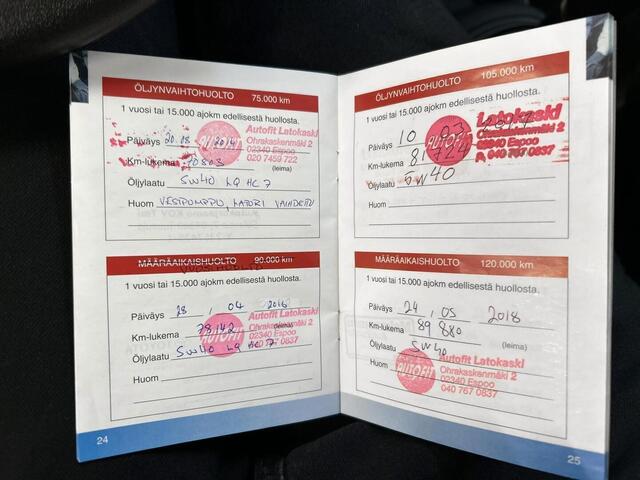 ÖLJYNVAIHTOHUOLTO 75.000 km
1 vuosi tai 15.000 ajokm edellisestä huollosta.
Päiväys 2014
Autofit Latokaski
Ohrakaskenmäki 2
02340 Espoo
020 7459 722
AUTOFIT
Km-lukema 70803 (leima)
Öljylaatu 5W40 LQ HC7
Huom VESIPUMPPU, LATURI VAIHDETTU
MÄÄRÄAIKAISHUOLTO 90.000 km
VUOSIHUOLTO
1 vuosi tai 15.000 ajokm edellisestä huollosta.
Päiväys 28 . 04 2016
Autofit Latokaski
Ohrakaskenmäki 2
02340 Espoo
040 767 0837
AUTOFIT
Km-lukema 78142 (leima)
Öljylaatu 5W40 LQ HC7
Huom
24
ÖLJYNVAIHTOHUOLTO 105.000 km
1 vuosi tai 15.000 ajokm edellisestä huollosta.
Päiväys 10 2017
Latokaski
Ohrakaskenmäki 2
02340 Espoo
P. 040 767 0837
AUTOFIT
Km-lukema 81724
Öljylaatu 5W40
Huom
MÄÄRÄAIKAISHUOLTO 120.000 km
1 vuosi tai 15.000 ajokm edellisestä huollosta.
Päiväys 24 . 05 2018
Km-lukema 89 880 (leima)
Öljylaatu 5W40
Autofit Latokaski
Ohrakaskenmäki 2
02340 Espoo
040 767 0837
AUTOFIT
Huom
25